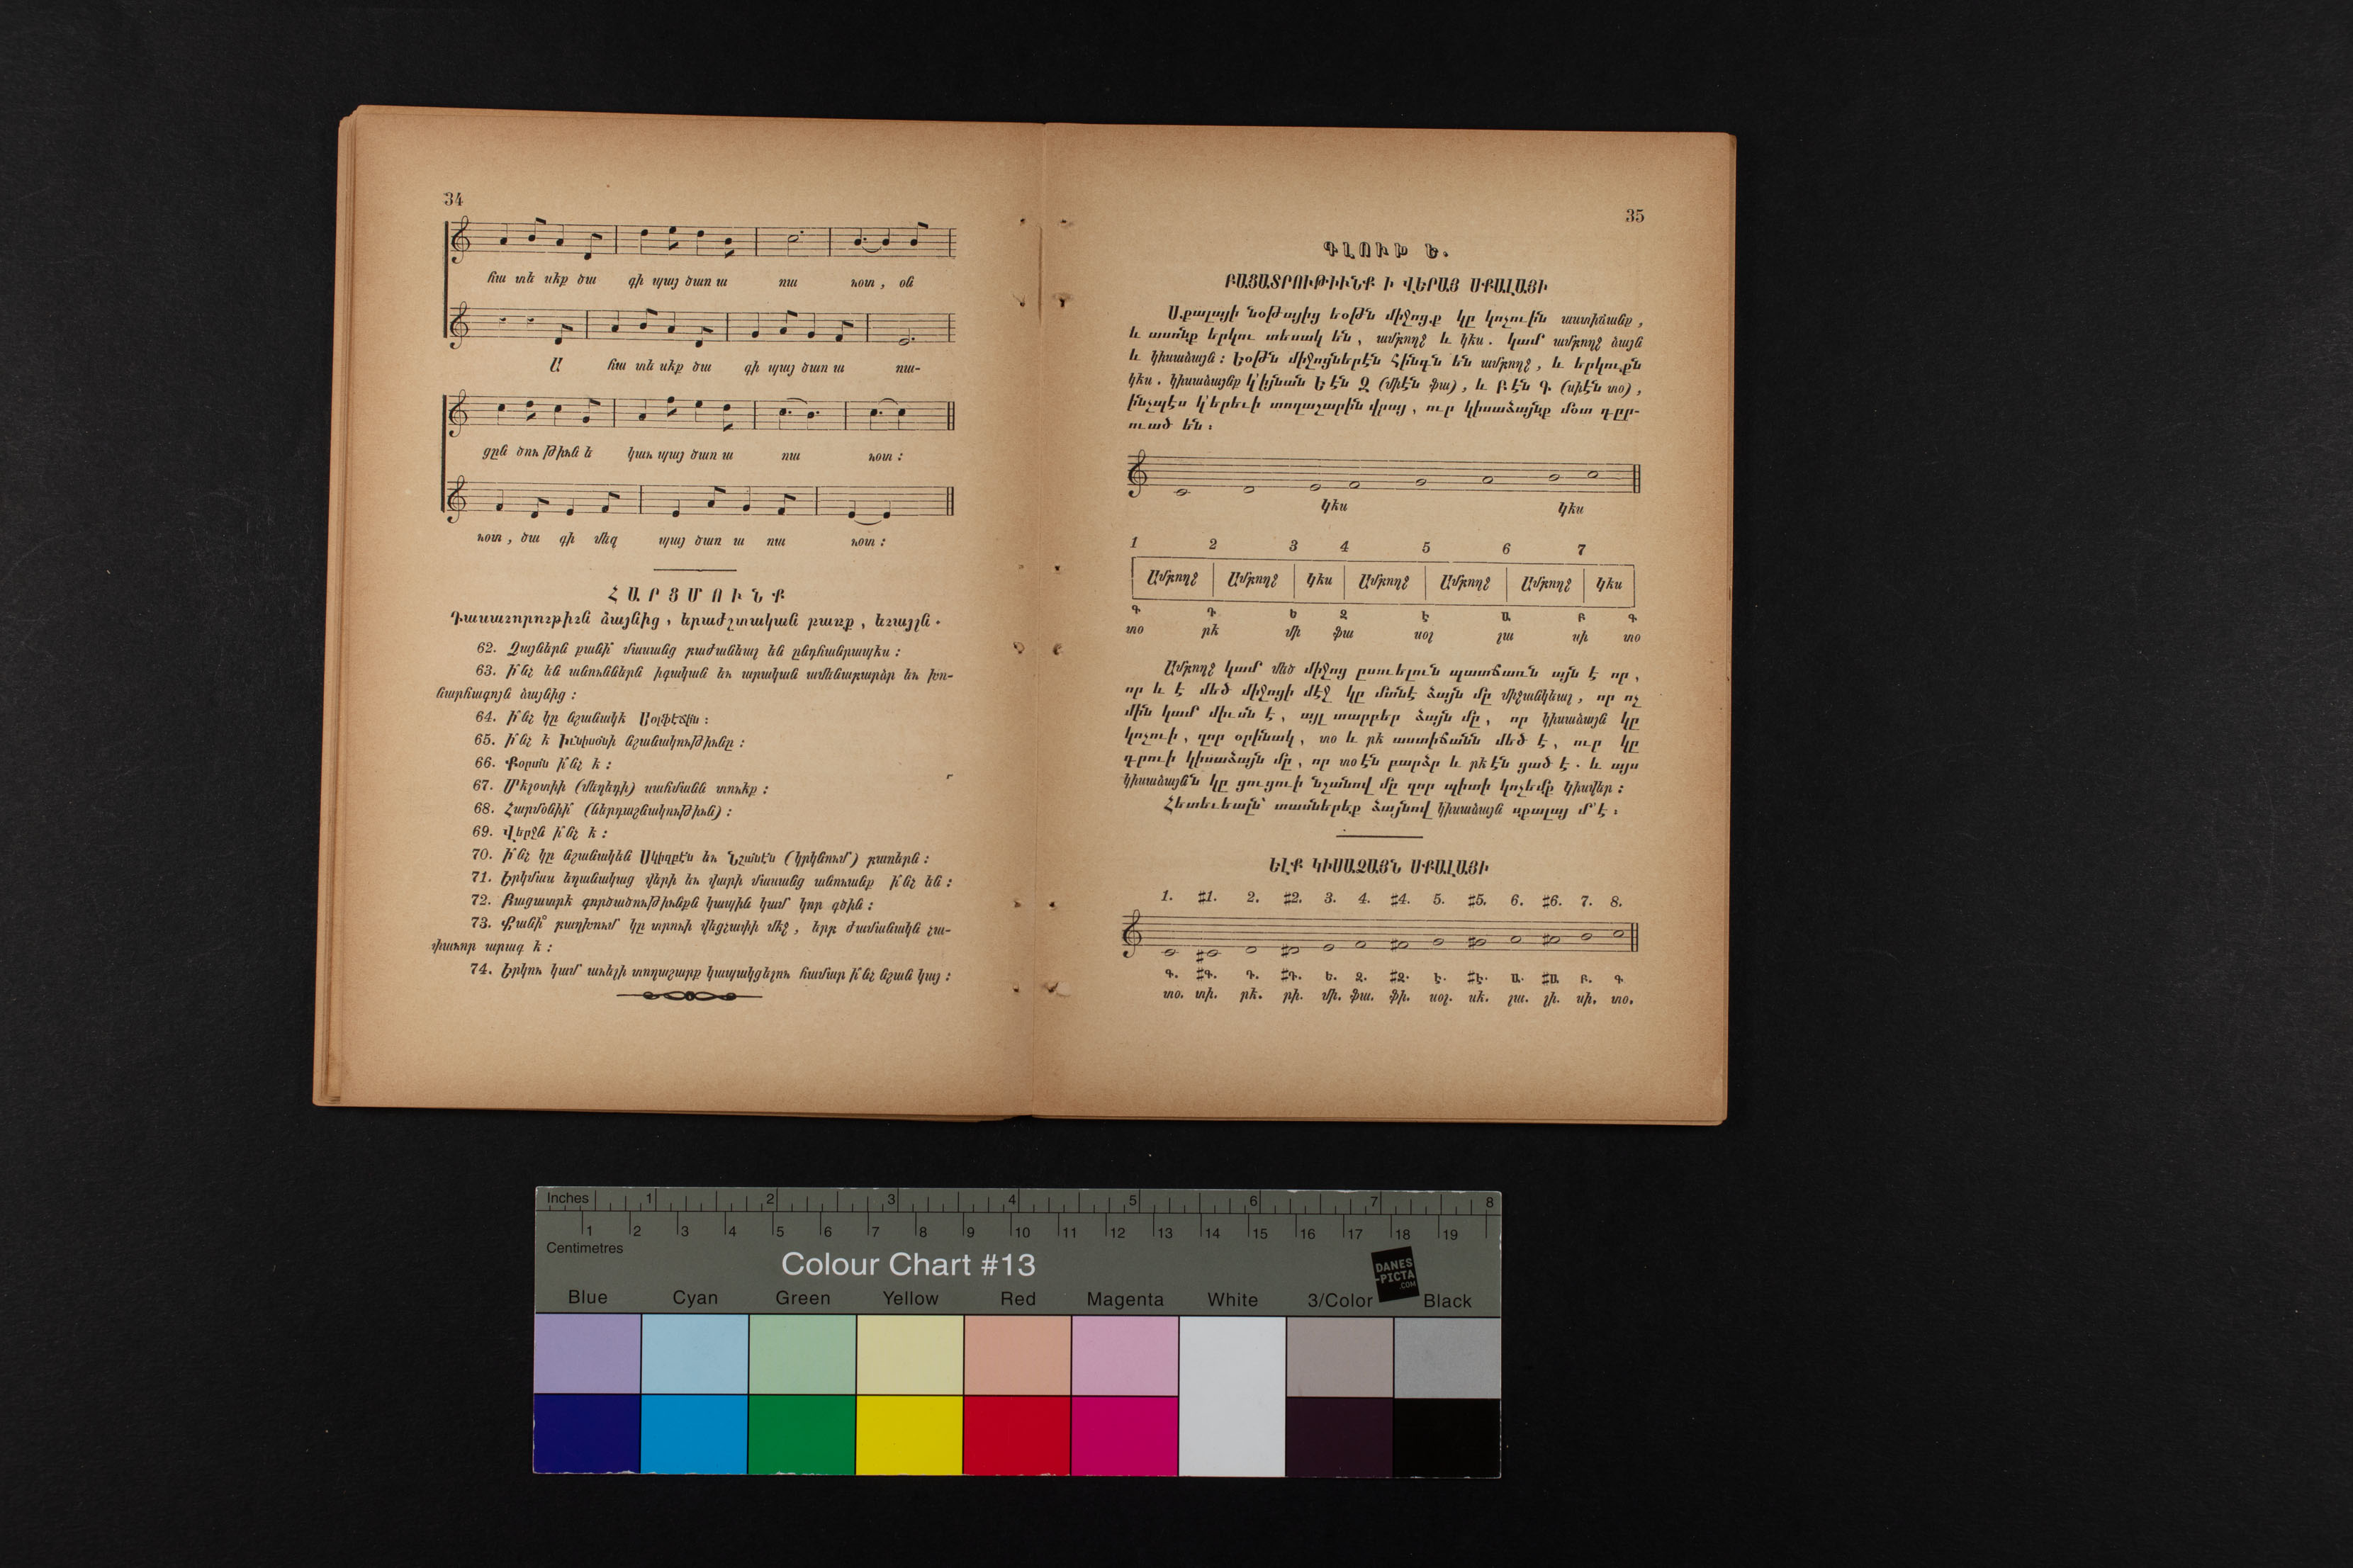 34
հա տե սէք ծա գի պայ ծառ ա նա ւօտ, օն
Ա հա տե սէք ծա գի պայ ծառ ա նա-
ցըն ծու թիւն ե կաւ պայ ծառ ա նա ւօտ :
ւօտ, ծա գի մեզ պայ ծառ ա նա ւօտ :
ՀԱՐՑՄՈՒՆՔ
Դասաւորութիւն ձայնից, երաժշտական բառք, եւայլն.
62. Ձայներն քանի՞ մասանց բաժանեալ են ընդհանրապէս :
63. Ի՞նչ են անուններն իգական եւ արական ամենաբարձր եւ խո-
նարհագոյն ձայնից :
64. Ի՞նչ կը նշանակէ Սոլֆէճօն :
65. Ի՞նչ է նշանակութիւնը :
66. Քօրսն ի՞նչ է :
67. Մէլօտիի (մեղեդի) սահմանն տուէք :
68. Հարմօնիի՞ (ներդաշնակութիւն) :
69. Վերջն ի՞նչ է :
70. Ի՞նչ կը նշանակեն Սկիզբէն եւ Նշանէն (կրկնում) բառերն :
71. Երկմաս եղանակաց վերի եւ վարի մասանց անուանք ի՞նչ են :
72. Բացատրէ գործածութիւնքն կապին կամ կոր գծին :
73. Քանի՞ բաղխում կը տրուի վեցչափի մէջ, երբ ժամանակն չա-
փաւոր արագ է :
74. Երկու կամ աւելի տողաշարք կապակցելու համար ի՞նչ նշան կայ :
35
ԳԼՈՒԽ Ե.
ԲԱՑԱՏՐՈՒԹԻՒՆՔ Ի ՎԵՐԱՅ ՍՔԱԼԱՅԻ
Սքալայի նօթայից եօթն միջոցք կը կոչուին աստիճանք,
և ասոնք երկու տեսակ են, ամբողջ և կէս. կամ ամբողջ ձայն
և կիսաձայն : Եօթն միջոցներէն հինգն են ամբողջ, և երկուքն
կէս. կիսաձայնք կ՚իյնան Ե էն Զ (միէն ֆա), և Բ էն Գ (սիէն տօ),
ինչպէս կ՚երեւի տողաշարին վրայ, ուր կիսաձայնք մօտ դըր-
ուած են :
կէս կէս
1 2 3 4 5 6 7
Ամբողջ Ամբողջ Կէս Ամբողջ Ամբողջ Ամբողջ Կէս
Գ Դ Ե Զ Է Ա Բ Գ
տօ րէ մի ֆա սօլ լա սի տօ
Ամբողջ կամ մեծ միջոց ըսուելուն պատճառն այն է որ,
որ և է մեծ միջոցի մէջ կը մտնէ ձայն մը միջանկեալ, որ ոչ
մին կամ միւսն է, այլ տարբեր ձայն մը, որ կիսաձայն կը
կոչուի, զոր օրինակ, տօ և րէ աստիճանն մեծ է, ուր կը
գրուի կիսաձայն մը, որ տօ էն բարձր և րէ էն ցած է. և այս
կիսաձայնն կը ցուցուի նշանով մը զոր պիտի կոչեմք կիսվեր :
Հետեւեալն՝ տասներեք ձայնով կիսաձայն սքալայ մ՚է :
ԵԼՔ ԿԻՍԱՁԱՅՆ ՍՔԱԼԱՅԻ
1. ♯1. 2. ♯2. 3. 4. ♯4. 5. ♯5. 6. ♯6. 7. 8.
Գ. ♯Գ. Դ. ♯Դ. Ե. Զ. ♯Զ. Է. ♯Է. Ա. ♯Ա Բ. Գ
տօ. տի. րէ. րի. մի. ֆա. ֆի. սօլ. սէ. լա. լի. սի. տօ.
Inches 1 2 3 4 5 6 7 8
1 2 3 4 5 6 7 8 9 10 11 12 13 14 15 16 17 18 19
Centimetres
Colour Chart #13
DANES
-PICTA
.COM
Blue Cyan Green Yellow Red Magenta White 3/Color Black